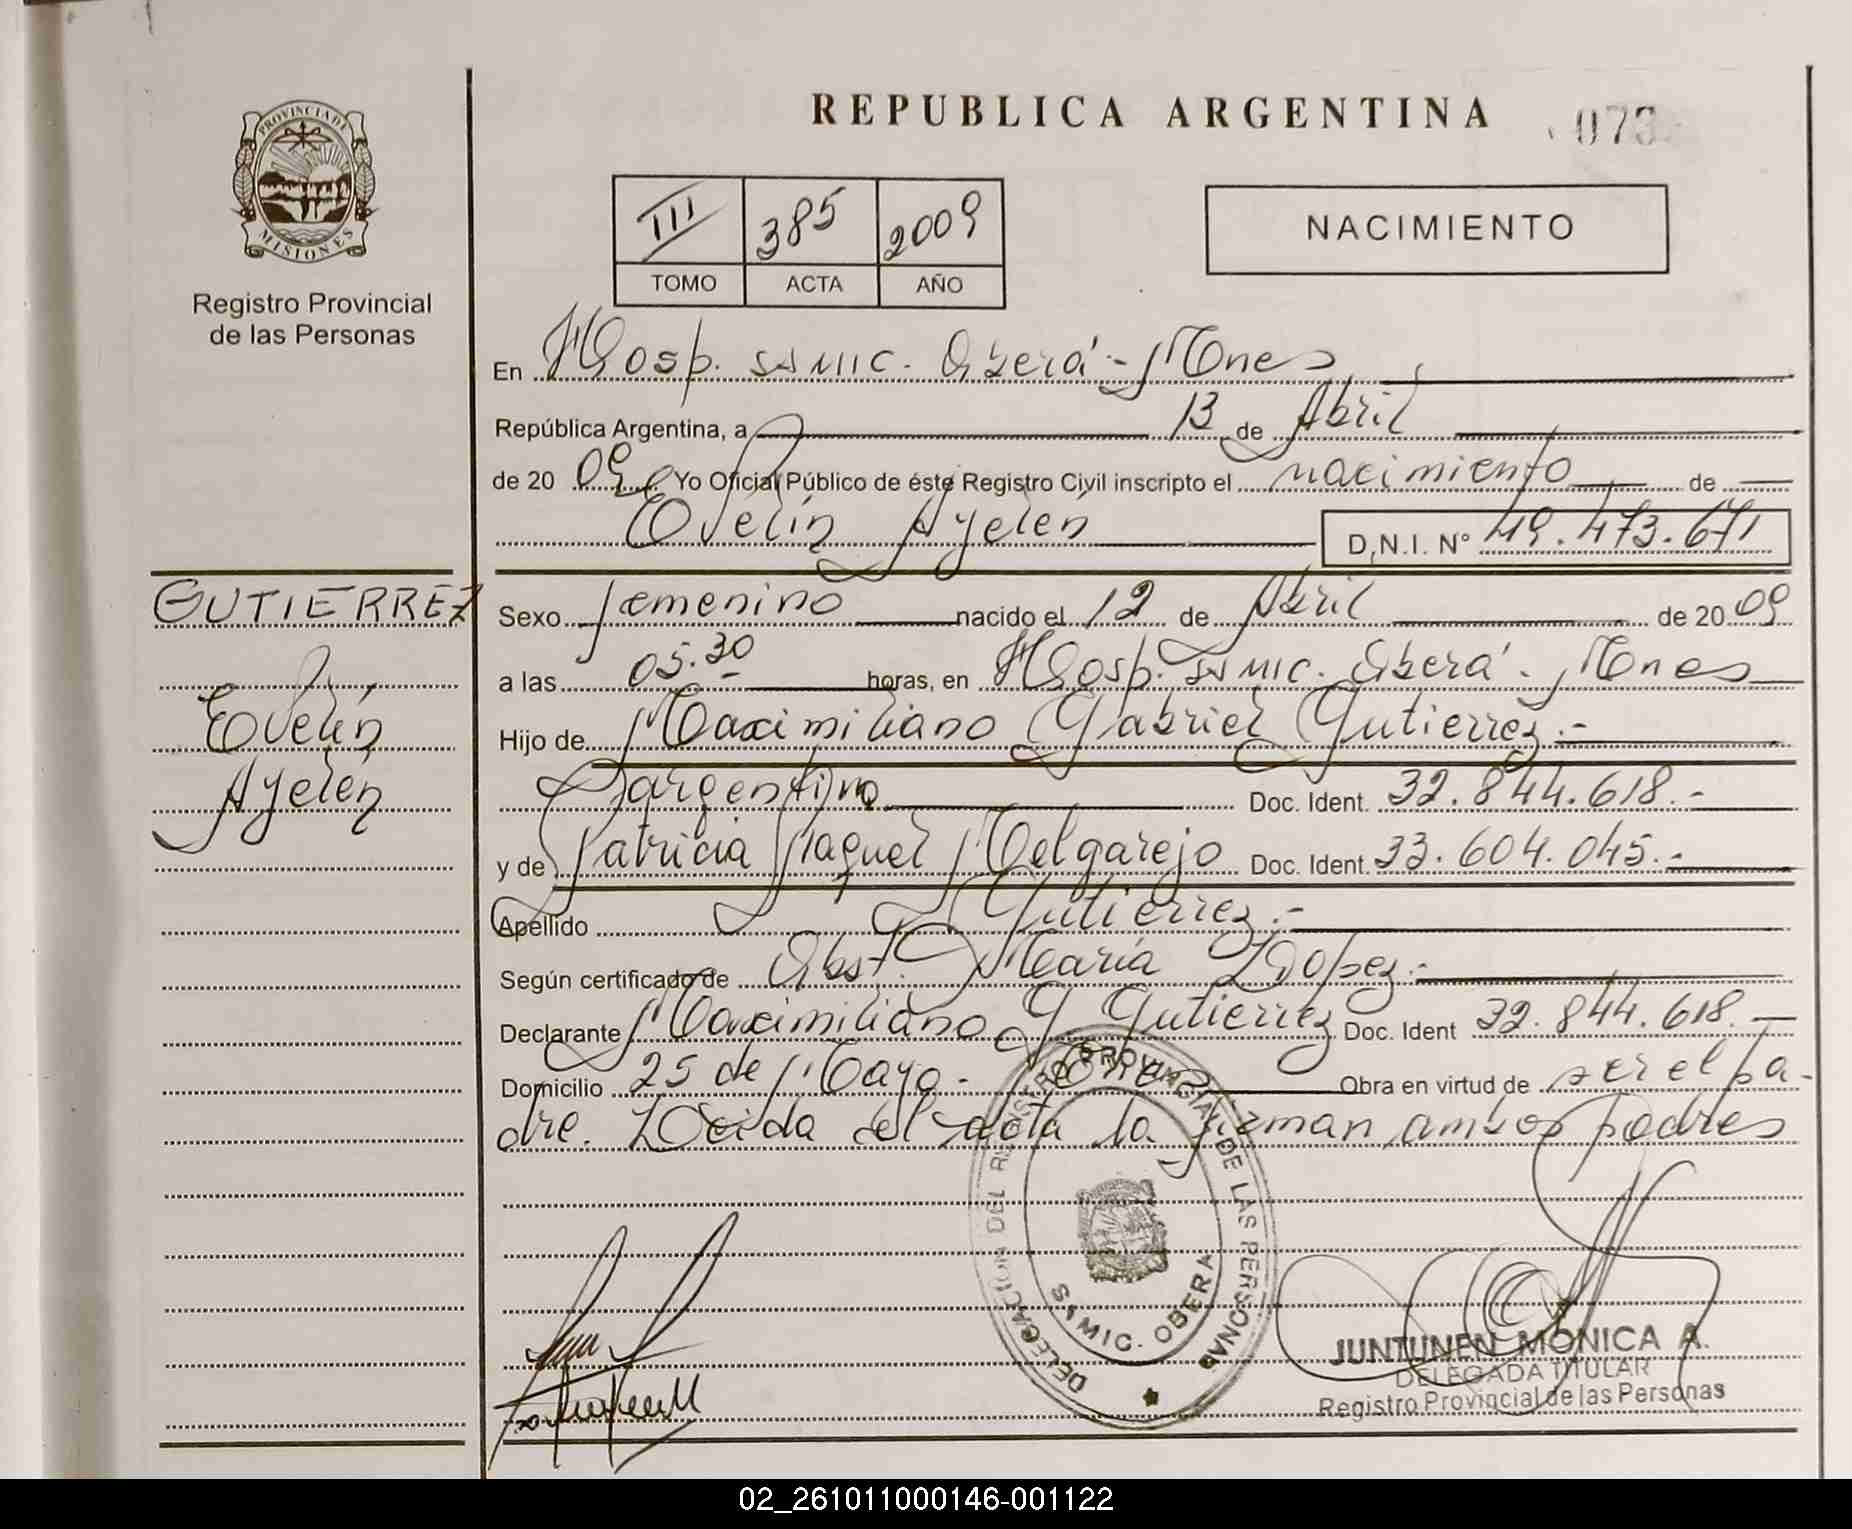 REPUBLICA ARGENTINA
073
PROVINCIA DE
MISIONES
Registro Provincial
de las Personas
III 385 2009
TOMO ACTA AÑO
NACIMIENTO
En Hosp. SAMIC. Oberá - Mnes
República Argentina, a 13 de Abril
de 20 09 Yo Oficial Público de éste Registro Civil inscripto el nacimiento de
Evelin Ayelén D.N.I. N° 49.473.671
GUTIERREZ
Evelin
Ayelén
Sexo femenino nacido el 12 de Abril de 20 09
a las 05.30 horas, en Hosp. SAMIC. Oberá - Mnes
Hijo de Maximiliano Gabriel Gutierrez.-
argentino Doc. Ident. 32.844.618.-
y de Patricia Raquel Melgarejo Doc. Ident. 33.604.045.-
Apellido Gutierrez.-
Según certificado de Obst. María López.-
Declarante Maximiliano G Gutierrez Doc. Ident 32.844.618.
Domicilio 25 de Mayo - Mnes Obra en virtud de ser el pa-
dre. Leida el acta la firman ambos padres
DELEGACION DEL REGISTRO PROVINCIAL DE LAS PERSONAS
SAMIC. OBERA
JUNTUNEN MONICA A.
DELEGADA TITULAR
Registro Provincial de las Personas
02_261011000146-001122